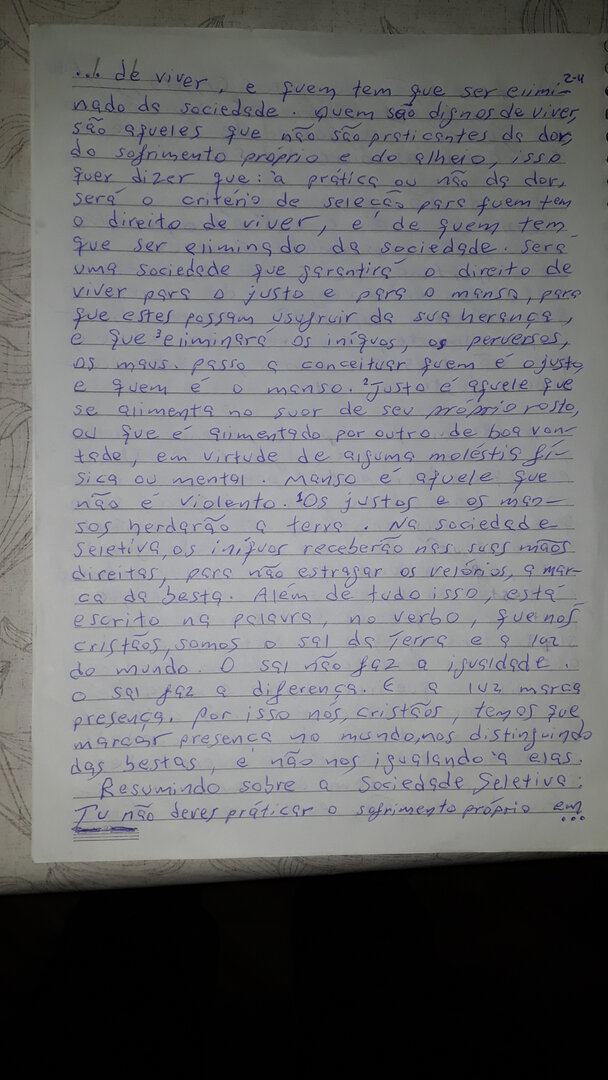 ... de viver, e quem tem que ser elimi- 2-4
nado da sociedade. Quem são dignos de viver,
são aqueles que não são praticantes da dor,
do sofrimento próprio e do alheio, isso
quer dizer que: a prática ou não da dor,
será o critério de seleção para quem tem
o direito de viver, e de quem tem
que ser eliminado da sociedade. Será
uma sociedade que garantirá o direito de
viver para o justo e para o manso, para
que estes possam usufruir da sua herança,
e que ³eliminará os iníquos, os perversos,
os maus. Passo a conceituar quem é o justo
e quem é o manso. ²Justo é aquele que
se alimenta no suor de seu próprio rosto,
ou que é alimentado por outro de boa von-
tade, em virtude de alguma moléstia fí-
sica ou mental. Manso é aquele que
não é violento. ¹Os justos e os man-
sos herdarão a terra. Na sociedade
seletiva, os iníquos receberão nas suas mãos
direitas, para não estragar os velórios, a mar-
ca da besta. Além de tudo isso, está
escrito na palavra, no verbo, que nós
cristãos, somos o sal da Terra e a luz
do mundo. O sal não faz a igualdade.
O sal faz a diferença. E a luz marca
presença. Por isso nós, cristãos, temos que
marcar presença no mundo, nos distinguindo
das bestas, e não nos igualando à elas.
Resumindo sobre a Sociedade Seletiva:
Tu não deves práticar o sofrimento próprio em
...